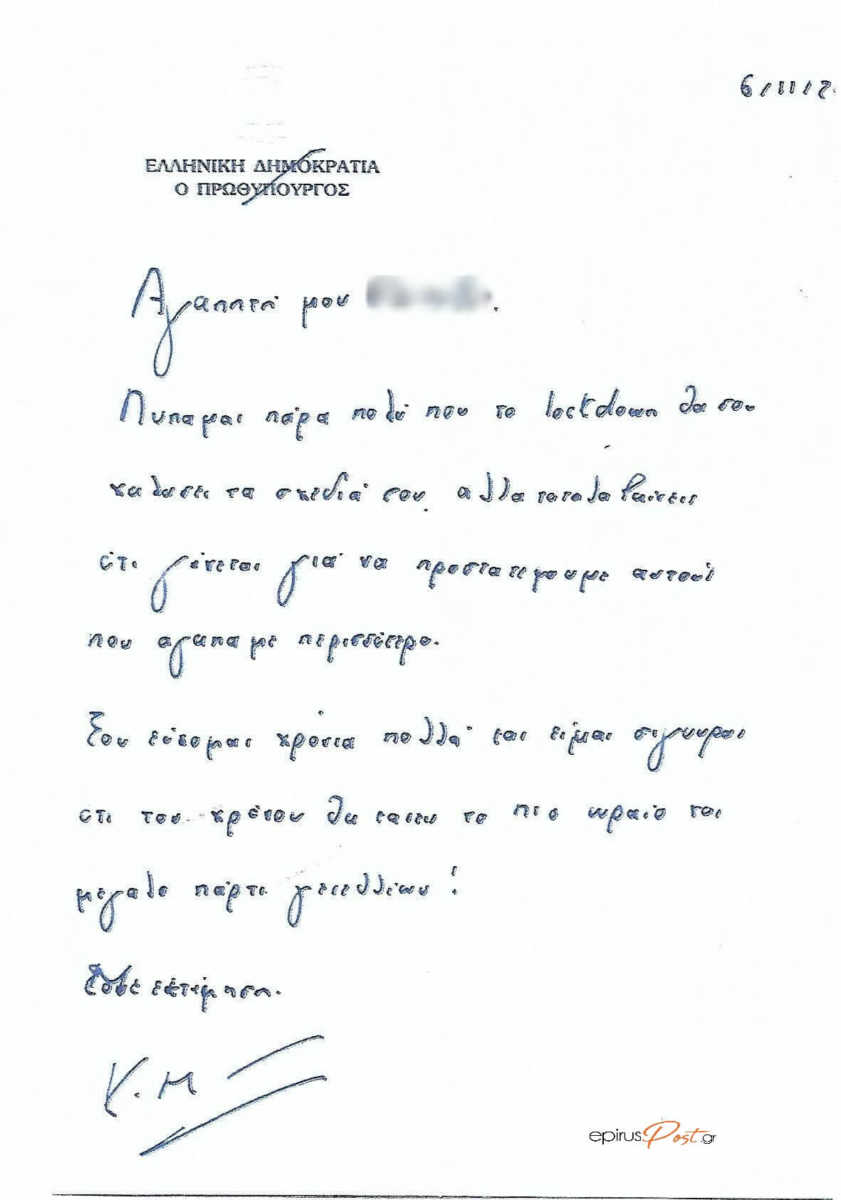 6/11/2
ΕΛΛΗΝΙΚΗ ΔΗΜΟΚΡΑΤΙΑ
Ο ΠΡΩΘΥΠΟΥΡΓΟΣ
Αγαπητή μου
Λυπάμαι πάρα πολύ που το lockdown θα σου
χαλάσει τα σχέδιά σου, αλλά καταλαβαίνεις
ότι γίνεται για να προστατέψουμε αυτούς
που αγαπάμε περισσότερο.
Σου εύχομαι χρόνια πολλά και είμαι σίγουρος
ότι του χρόνου θα κάνεις το πιο ωραίο και
μεγάλο πάρτι γενεθλίων!
εκτίμηση.
Κ.Μ
epirusPost.gr